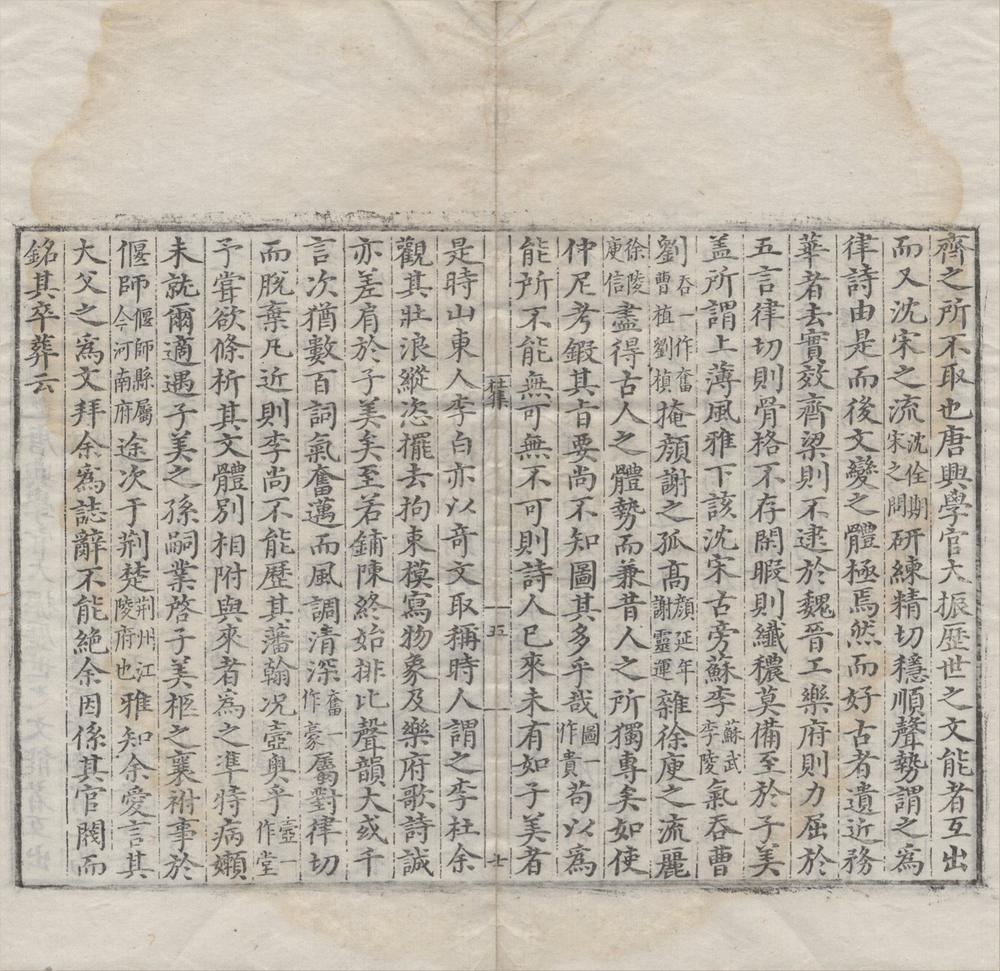 齊之所不取也唐興學官大振歷世之文能者互出
而又沈宋之流沈佺期宋之問研練精切穩順聲勢謂之爲
律詩由是而後文變之體極焉然而好古者遺近務
華者去實效齊梁則不逮於魏晉工樂府則力屈於
五言律切則骨格不存閑暇則纖穠莫備至於子美
蓋所謂上薄風雅下該沈宋古旁蘇李蘇武李陵氣吞曹
劉吞一作奮曹植劉楨掩顏謝之孤高顏延年謝靈運雜徐庾之流麗
徐陵庾信盡得古人之體勢而兼昔人之所獨專矣如使
仲尼考鍛其旨要尚不知圖其多乎哉圖一作貴苟以爲
能所不能無可無不可則詩人已來未有如子美者
杜集
五
七
是時山東人李白亦以奇文取稱時人謂之李杜余
觀其壯浪縱恣擺去拘束模寫物象及樂府歌詩誠
亦差肩於子美矣至若鋪陳終始排比聲韻大或千
言次猶數百詞氣奮邁而風調清深奮一作豪屬對律切
而脫棄凡近則李尚不能歷其藩翰况壼奧乎壼一作堂
予嘗欲條析其文體別相附與來者爲之準特病嬾
未就爾適遇子美之孫嗣業啓子美柩之襄祔事於
偃師偃師縣屬今河南府途次于荆楚荆州江陵府也雅知余愛言其
大父之爲文拜余爲誌辭不能絶余因係其官閥而
銘其卒葬云